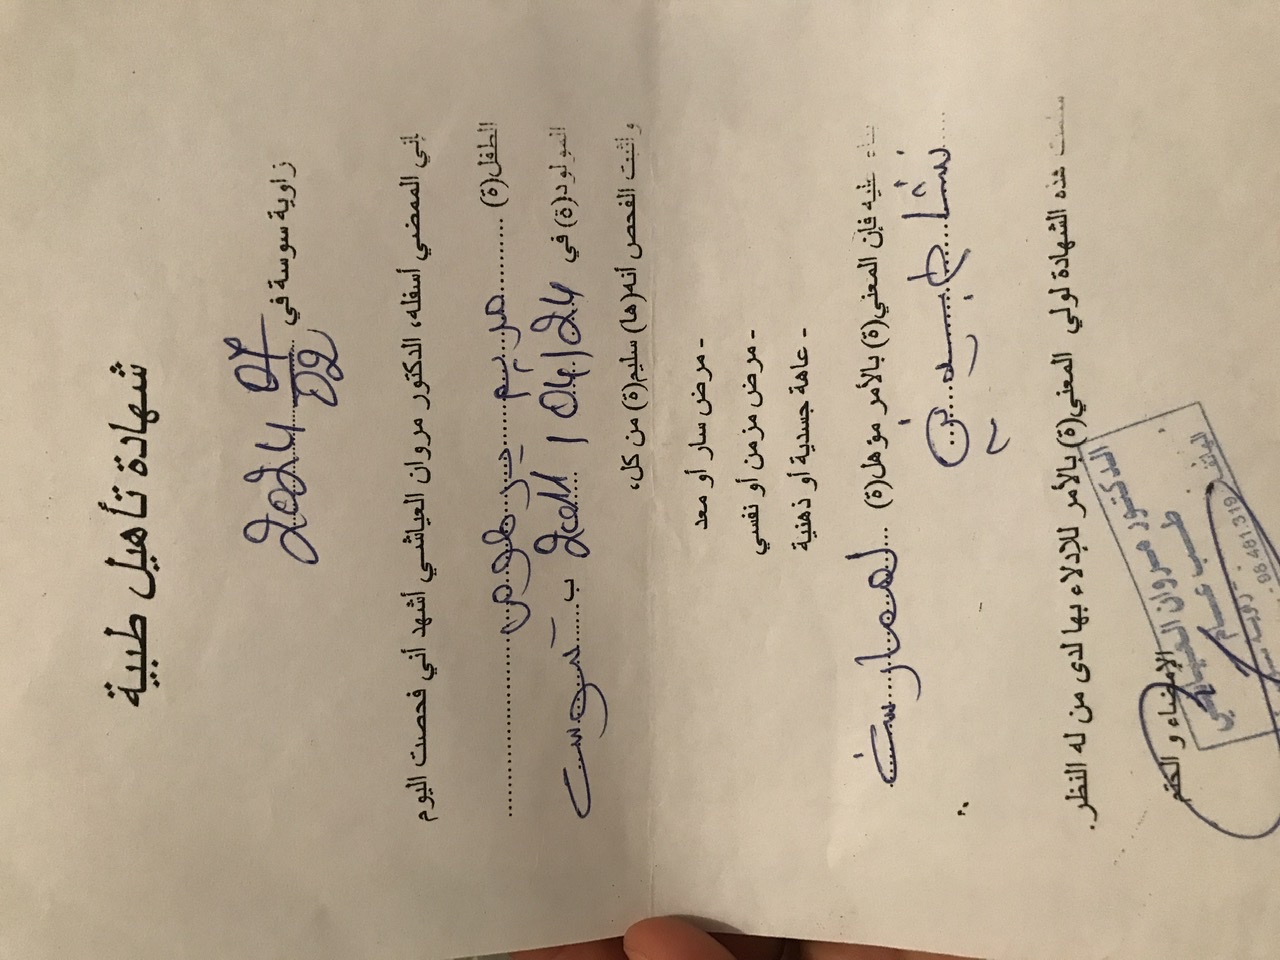 شهادة تأهيل طبية
زاوية سوسة في 2024 02
إني الممضي أسفله، الدكتور مروان العياشي أشهد أني فحصت اليوم
الطفل(ة) ........ مريم ........
المولود(ة) في 2011/04/24 ب ....... سوسة
و أثبت الفحص أنه(ها) سليم(ة) من كل،
- مرض سار أو معد
- مرض مزمن أو نفسي
- عاهة جسدية أو ذهنية
بناء عليه فإن المعني(ة) بالأمر مؤهل(ة) ... لممارسة
نشاط
سلمت هذه الشهادة لولي المعني(ة) بالأمر للإدلاء بها لدى من له النظر.
الإمضاء و الختم
الدكتور مروان العياشي
طب عام
98 481 319